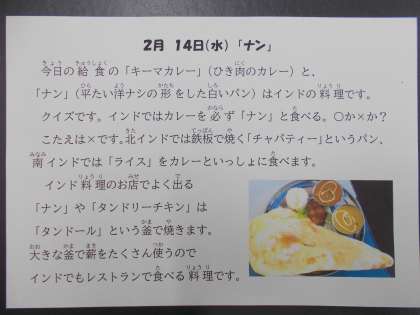 2月 14日(水)「ナン」
今日の給食の「キーマカレー」(ひき肉のカレー)と、
「ナン」(平たい洋ナシの形をした白いパン)はインドの料理です。
クイズです。インドではカレーを必ず「ナン」と食べる。○か×か?
こたえは×です。北インドでは鉄板で焼く「チャパティー」というパン、
南インドでは「ライス」をカレーといっしょに食べます。
インド料理のお店でよく出る
「ナン」や「タンドリーチキン」は
「タンドール」という釜で焼きます。
大きな釜で薪をたくさん使うので
インドでもレストランで食べる料理です。